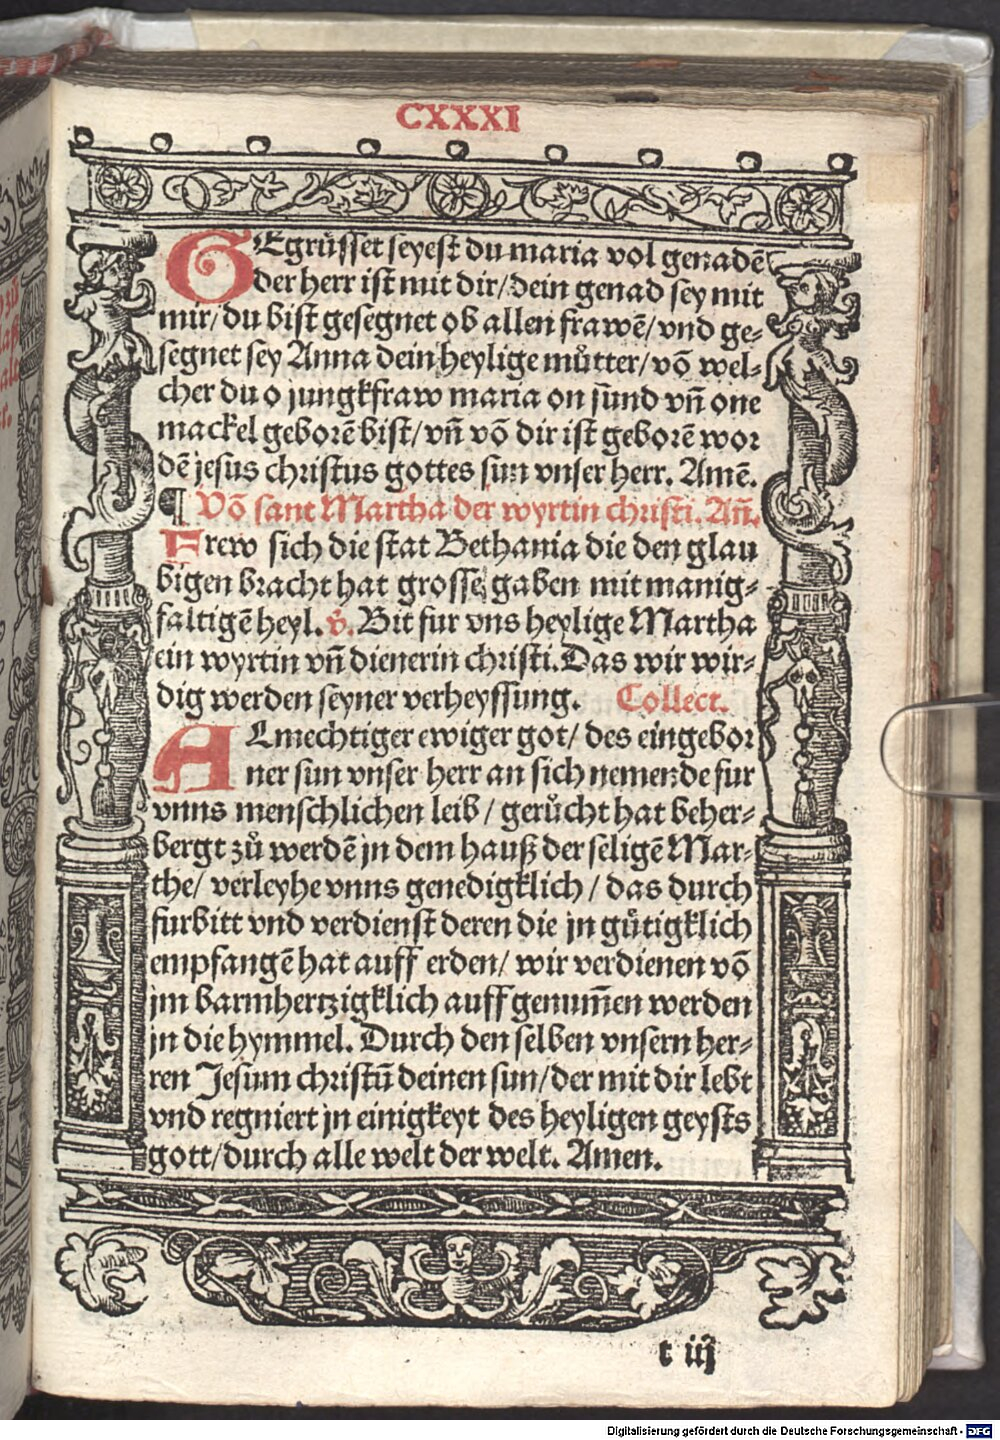 CXXXI
GEgrůsset seyest du maria vol genadē
der herr ist mit dir/dein genad sey mit
mir/du bist gesegnet ob allen frawē/vnd ge-
segnet sey Anna dein heylige můtter/vō wel-
cher du o jungkfraw maria on sünd vñ one
mackel geborē bist/vñ vō dir ist geborē wor
dē jesus christus gottes sun vnser herr. Amē.
¶ Vō sant Martha der wyrtin christi. Añ.
Frew sich die stat Bethania die den glau
bigen bracht hat grosse gaben mit manig-
faltigē heyl. v̊. Bit fur vns heylige Martha
ein wyrtin vñ dienerin christi. Das wir wir-
dig werden seyner verheyssung. Collect.
ALmechtiger ewiger got/ des eingebor
ner sun vnser herr an sich nemende fur
vnns menschlichen leib/ gerůcht hat beher-
bergt zů werdē jn dem hauß der seligē Mar-
the/ verleyhe vnns genedigklich/ das durch
furbitt vnd verdienst deren die jn gůtigklich
empfangē hat auff erden/ wir verdienen vō
jm barmhertzigklich auff genum̄en werden
jn die hymmel. Durch den selben vnsern her-
ren Jesum christū deinen sun/der mit dir lebt
vnd regniert jn einigkeyt des heyligen geysts
gott/durch alle welt der welt. Amen.
t iij
Digitalisierung gefördert durch die Deutsche Forschungsgemeinschaft - DFG